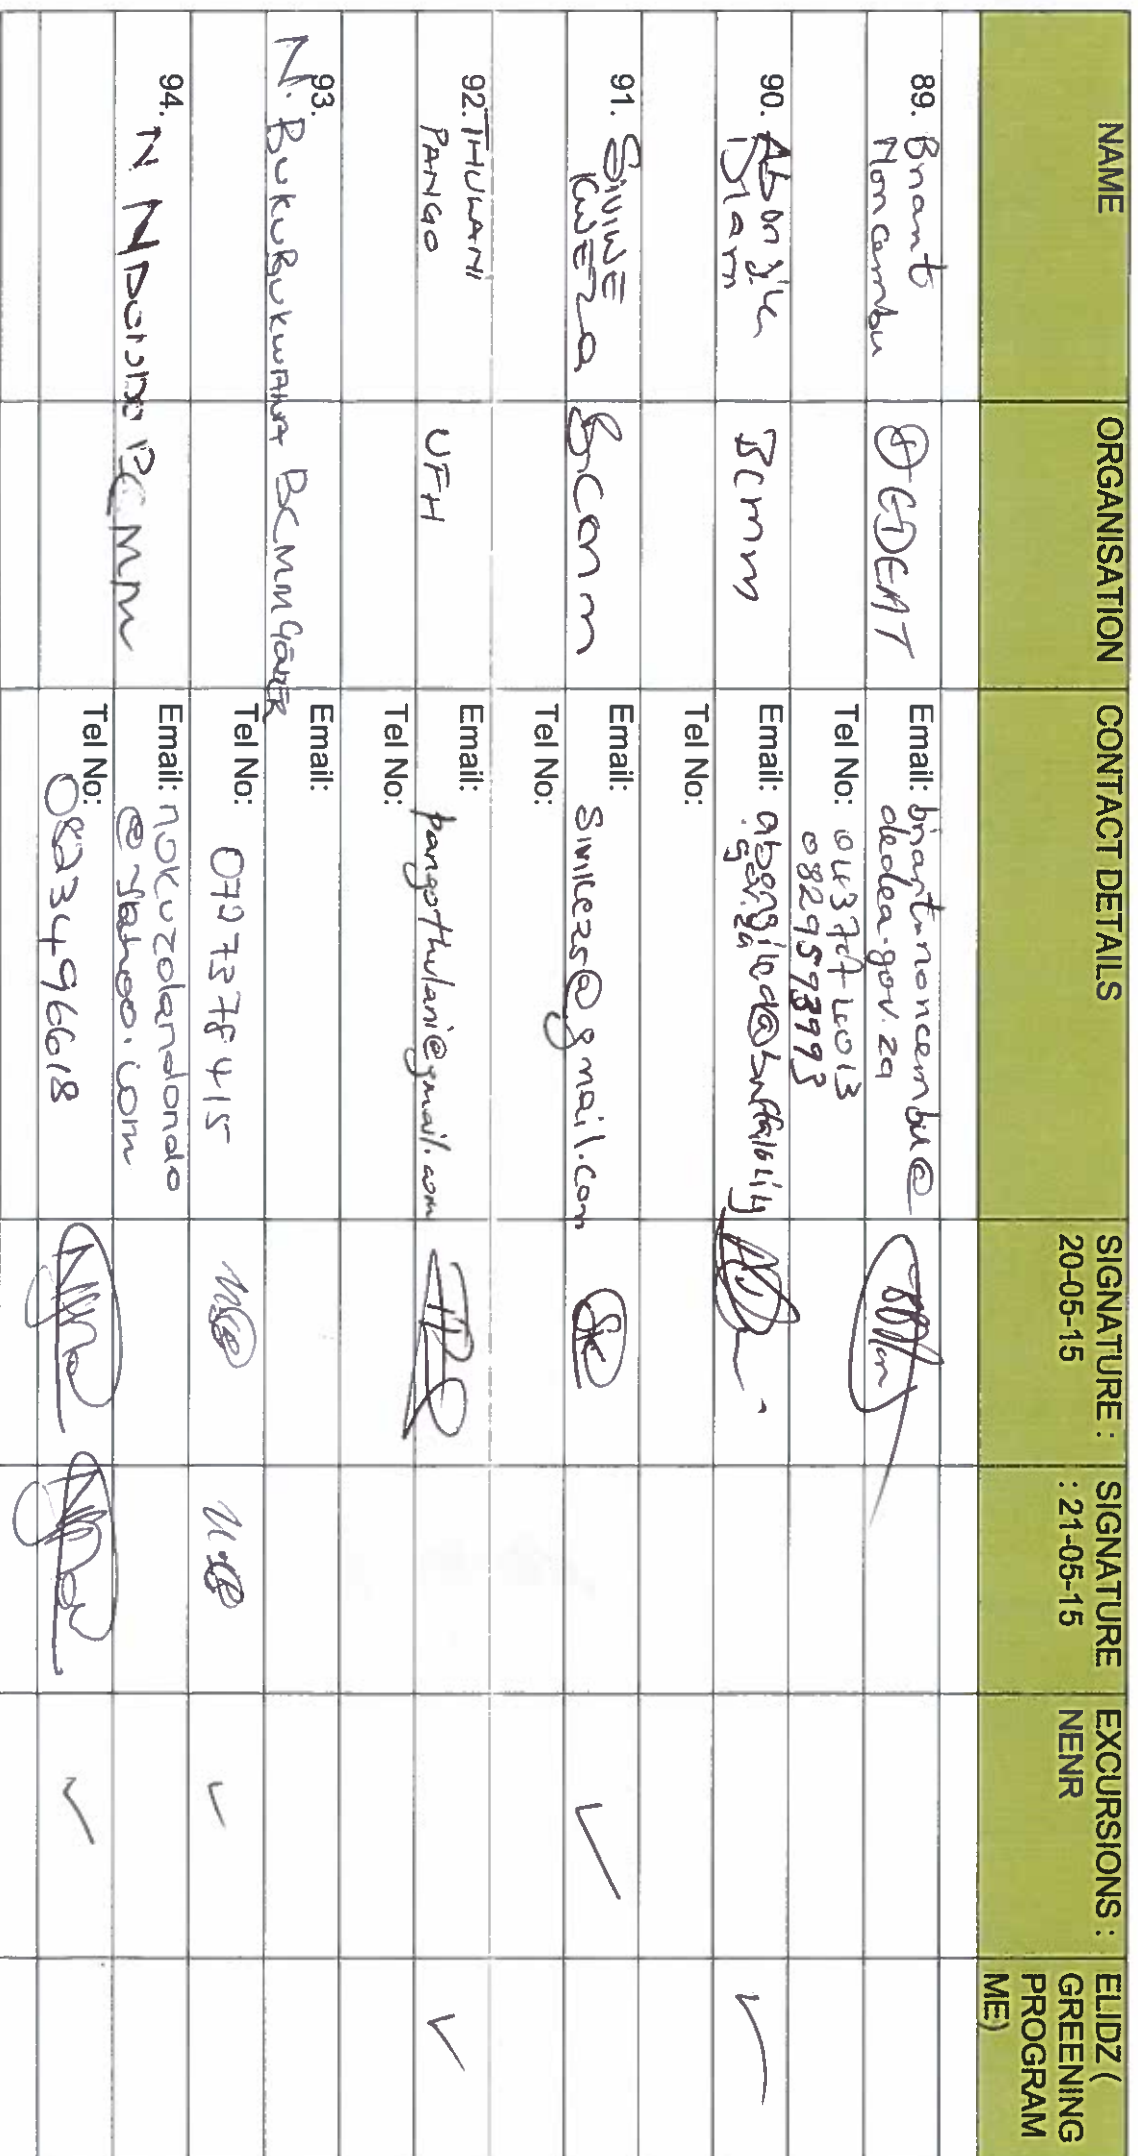 NAME
ORGANISATION
CONTACT DETAILS
SIGNATURE :
20-05-15
SIGNATURE
: 21-05-15
EXCURSIONS :
NENR
ELIDZ (
GREENING
PROGRAM
ME)
89. Briant
Noncembu
DEDEAT
Email: briant.noncembu@
dedea.gov.za
Tel No: 043 707 4013
0829593993
90. Abongile
Dlani
BCMM
Email: abongiled@buffalocity
.gov.za
Tel No:
91. SIVIWE
KWEZA
BCMM
Email: Sivikezs@gmail.com
Tel No:
92. THULANI
PANGO
UFH
Email: pangothulani@gmail.com
Tel No:
93.
N. BUKUBUKWANA BCMM
Email:
Tel No: 0727378415
94. N NDONDO BCMM
Email: nokuzolandondo
@yahoo.com
Tel No:
0823496618